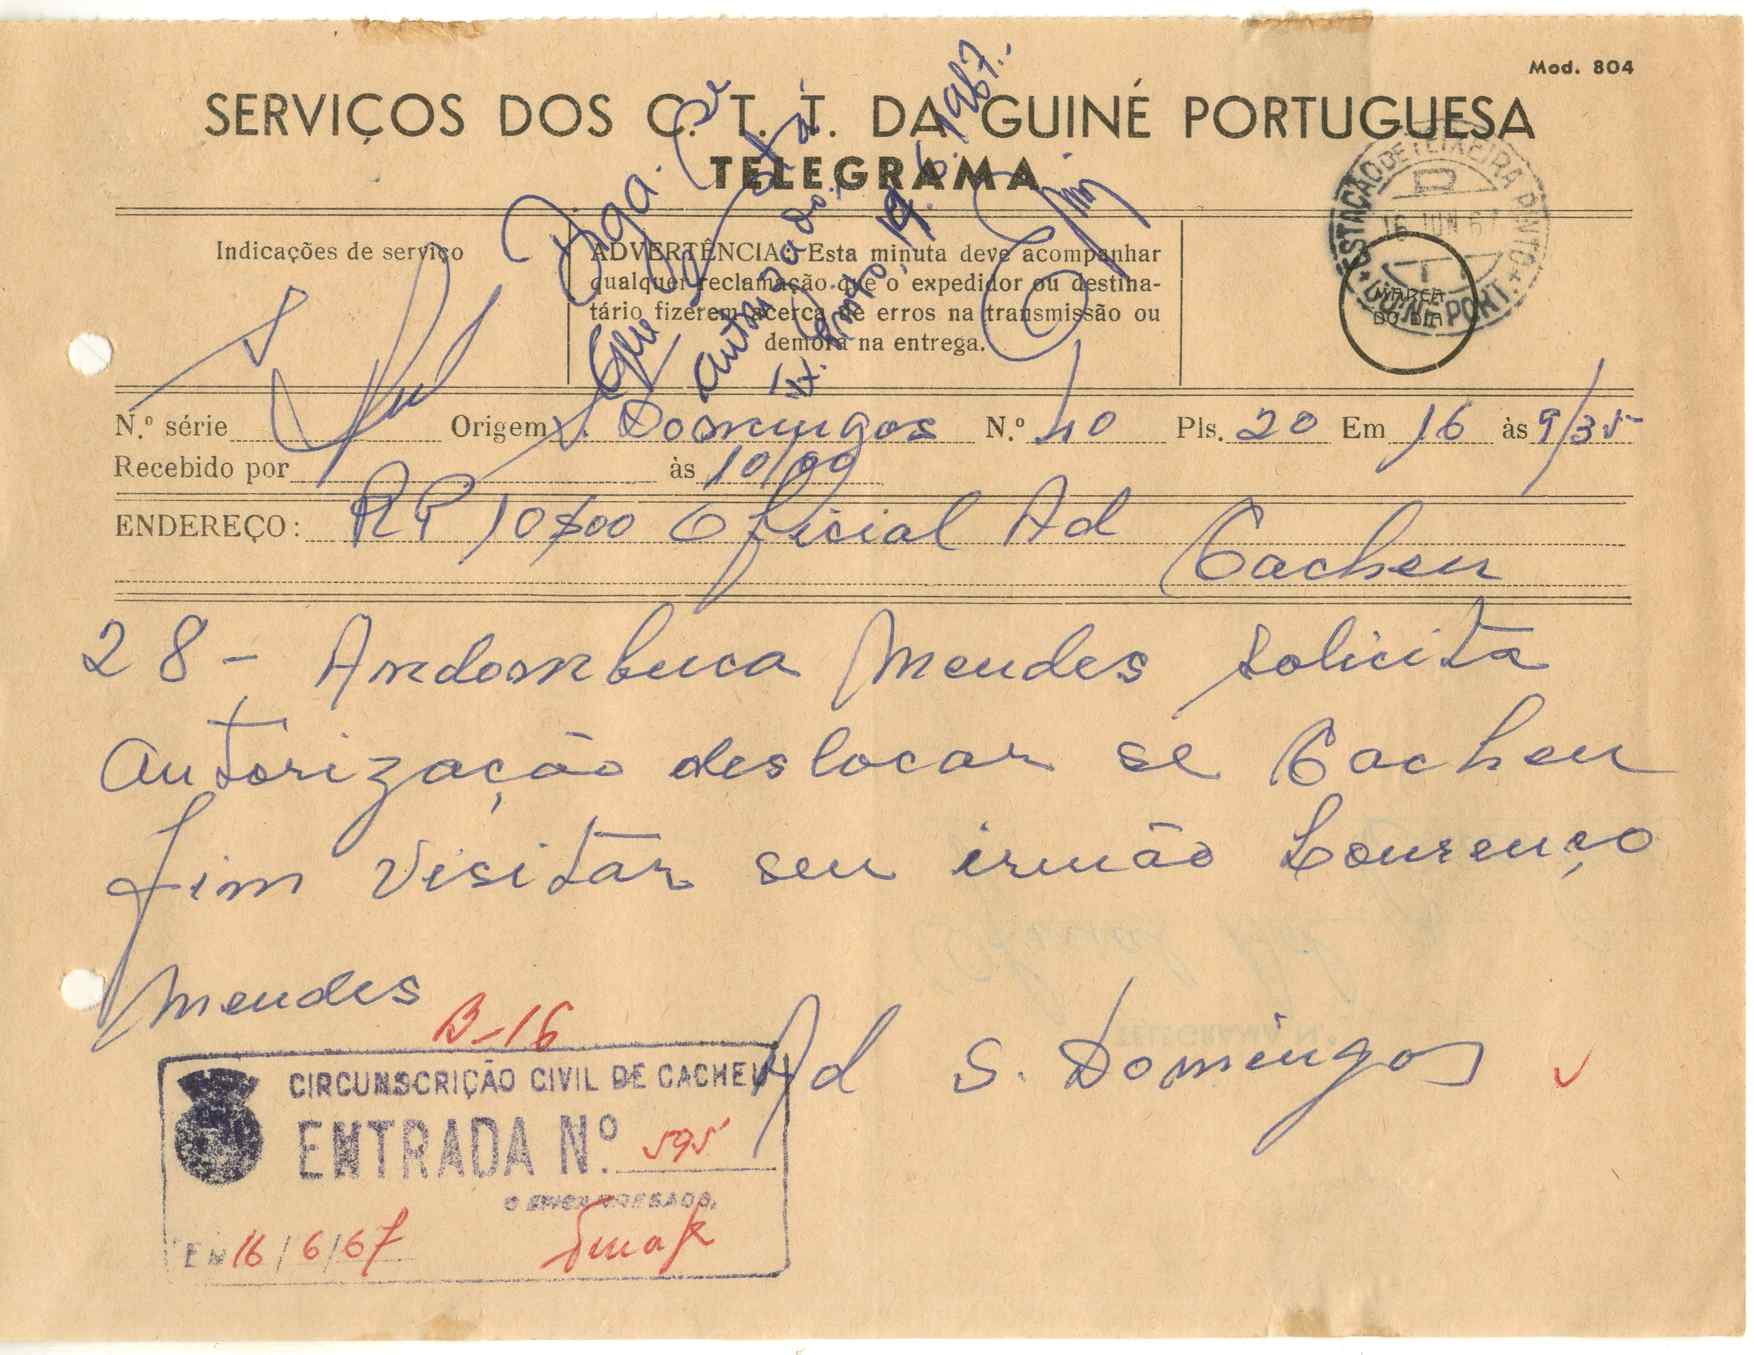 Mod. 804
SERVIÇOS DOS C. T. T. DA GUINÉ PORTUGUESA
TELEGRAMA
Diga-se
que está
autorizado.
19.6.1967.
ESTAÇÃO DE TEIXEIRA PINTO
16 JUN 67
GUINÉ PORT.
MARCA
DO DIA
Indicações de serviço
ADVERTÊNCIA: Esta minuta deve acompanhar
qualquer reclamação que o expedidor ou destina-
tário fizerem acerca de erros na transmissão ou
demora na entrega.
N.º série Origem S. Domingos N.º 40 Pls. 20 Em 16 às 9/35
Recebido por às 10/00
ENDEREÇO: RP 10$00 Oficial Ad
Cacheu
28 - Andombuca Mendes solicita
autorização deslocar se Cacheu
fim visitar seu irmão Lourenço
Mendes
Ad S. Domingos
B-16
CIRCUNSCRIÇÃO CIVIL DE CACHEU
ENTRADA N.º 595
O ENCARREGADO,
EM 16/6/67